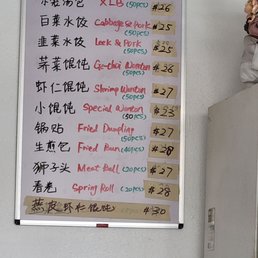 XLB (50pcs) $26
白菜水饺 Cabbage & Pork (50pcs) $25
韭菜水饺 Leek & Pork (50pcs) $25
荠菜馄饨 Gi-choi Wonton (50pcs) $26
虾仁馄饨 Shrimp Wonton (50pcs) $27
小馄饨 Special Wonton (50pcs) $23
锅贴 Fried Dumpling (50pcs) $27
生煎包 Fried Bun (40pcs) $28
狮子头 Meat Ball (20pcs) $27
春卷 Spring Roll (20pcs) $28
燕皮虾仁馄饨 $30